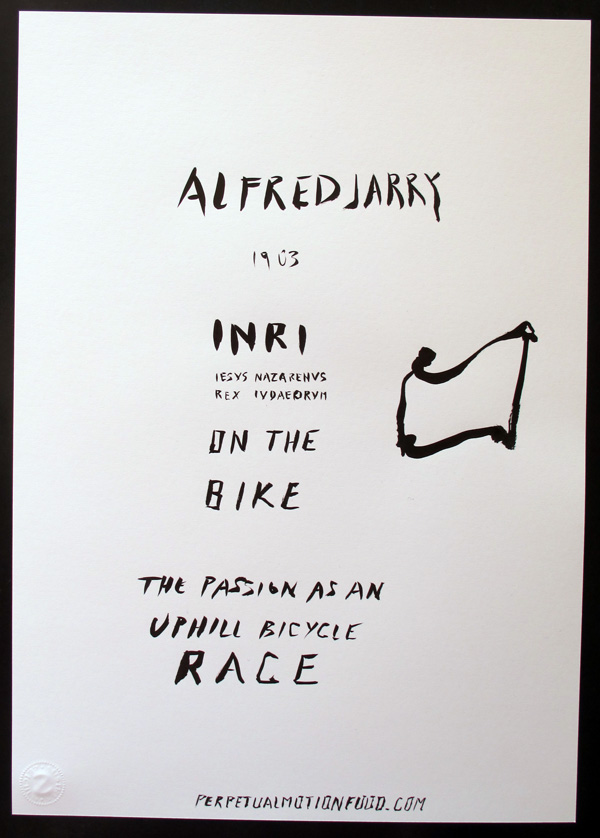 ALFRED JARRY
1903
INRI
IESVS NAZARENVS
REX IVDAEORVM
ON THE
BIKE
THE PASSION AS AN
UPHILL BICYCLE
RACE
PERPETUALMOTIONFOOD.COM